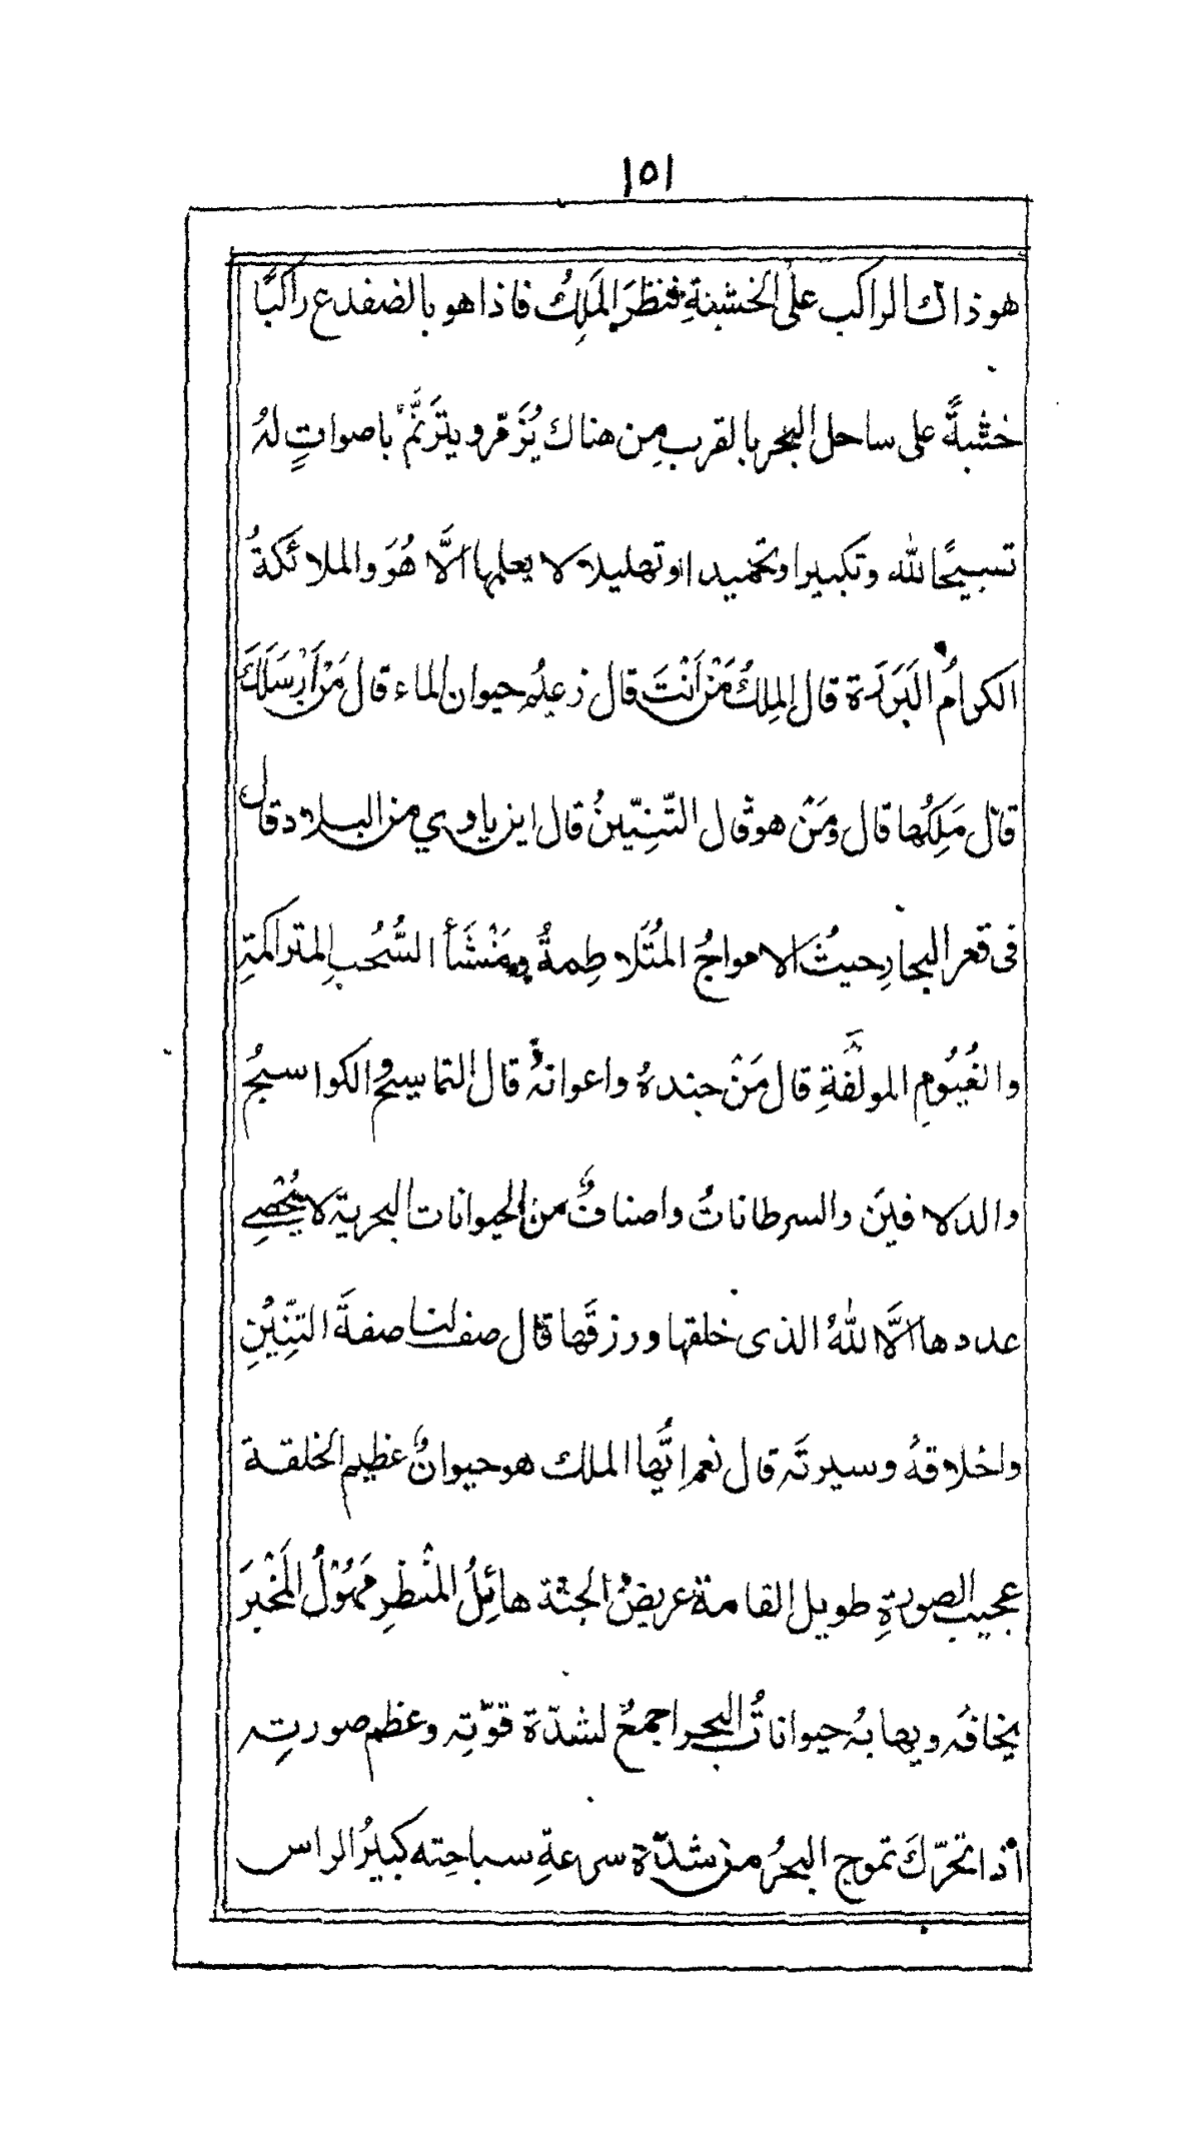 ١٥١
هو ذاك الراكب على الخشبةِ فنظرَ المَلِكُ فاذا هو بالضفدع راكبًا
خشبةً على ساحل البحر بالقرب مِن هناك يُزَمّر و يترَنَّمُ باصواتٍ لهُ
تسبيحًا لله وتكبيرا وتحميدا وتهليلا لا يعلمها الَّا هُوَ والملائكةُ
الكرامُ البَرَرَة قال المِلكُ مَنْ اَنْتَ قال زعيمُ حيوان الماء قال مَنْ اَرْسَلَكَ
قال مَلِكُها قال ومَنْ هو قال التّنِيّنُ قال اين ياوي من البلاد قال
فى قعر البحارِ حيثُ الامواجُ المُتَلاطِمةُ ومَنْشَأ السُّحُبِ المتراكمةِ
والغُيُومِ المولّفةِ قال مَنْ جندهُ واعوانهُ قال التماسيحُ والكواسجُ
والدلافينَ والسرطاناتُ واصنافٌ من الحيوانات البحرية لا يُحْصِے
عددها الَّا اللهُ الذى خلقها ورزقَها قال صف لنا صفةَ التّنِّيْنِ
واخلاقهُ وسيرتَه قال نعم ايُّها الملك هو حيوانٌ عظيم الخلقة
عجيب الصورةِ طويل القامة عريضُ الجثة هائِلُ المنْظرِ مَهُوْلُ المَخْبَرِ
يخافهُ ويهابهُ حيواناتُ البحر اجمعُ لشدّة قوّتِه وعظم صورتِه
اذا تحرّكَ تموج البحرُ من شدّة سرعةِ سباحتِه كبيرُ الراس